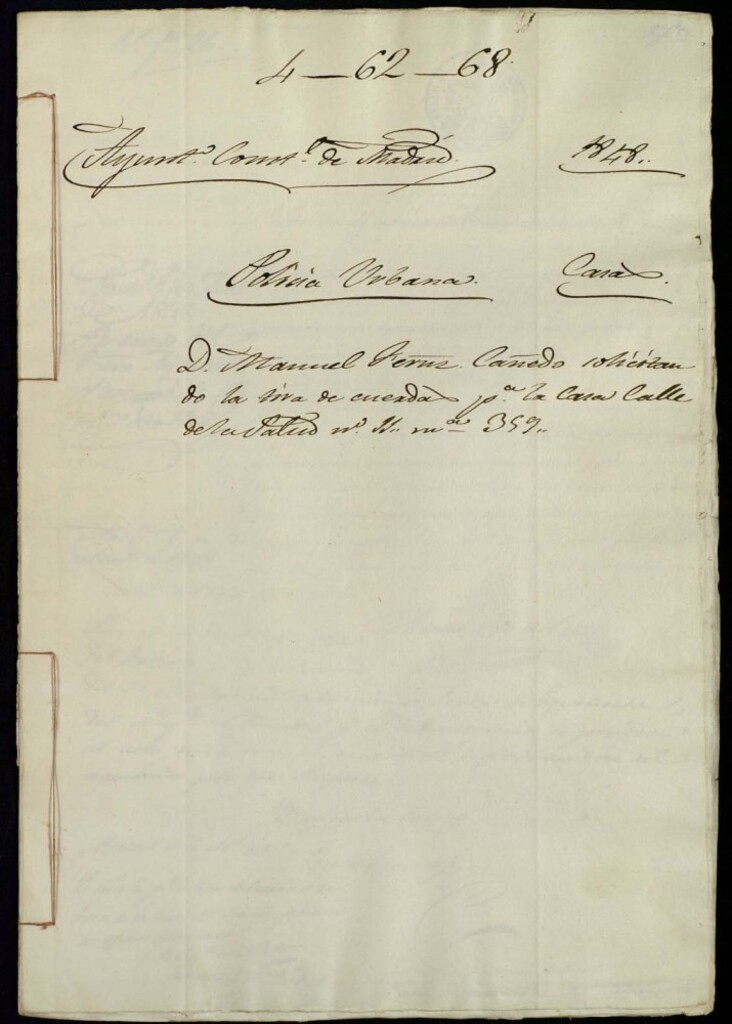 4-62-68
Ayunt.º Const.l de Madrid. 1848..
Policia Urbana. Casas.
D. Manuel Fernz. Cañedo solicitan
do la tira de cuerdas p.a la Casa Calle
de la Salud nº. 11.. m.a 359..